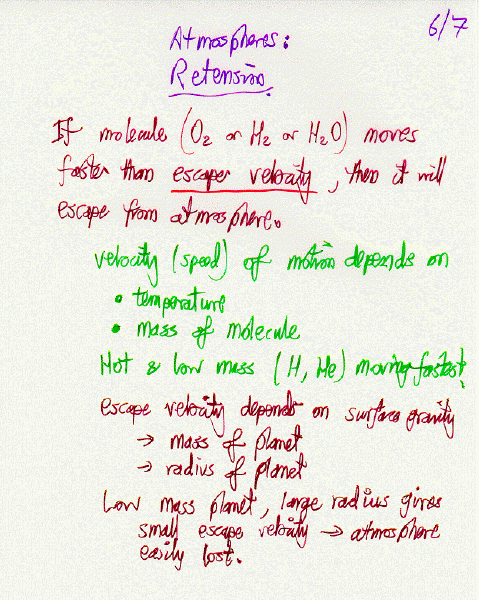 6/7
Atmospheres:
Retension.
If molecule (O2 or H2 or H2O) moves
faster than escape velocity, then it will
escape from atmosphere.
velocity (speed) of motion depends on
• temperature
• mass of molecule
Hot & low mass (H, He) moving fastest!
escape velocity depends on surface gravity
→ mass of planet
→ radius of planet
Low mass planet, large radius gives
small escape velocity → atmosphere
easily lost.